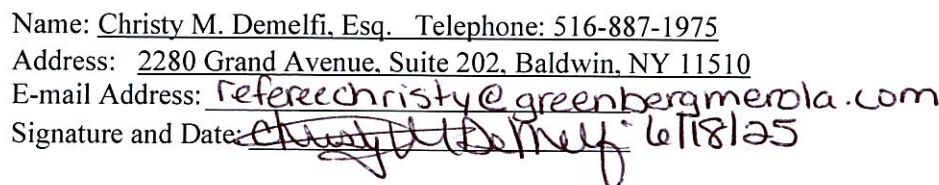 Name: Christy M. Demelfi, Esq. Telephone: 516-887-1975
Address: 2280 Grand Avenue, Suite 202, Baldwin, NY 11510
E-mail Address: refereechristy@greenbergmerola.com
Signature and Date: Christy M DeMelfi 6/18/25